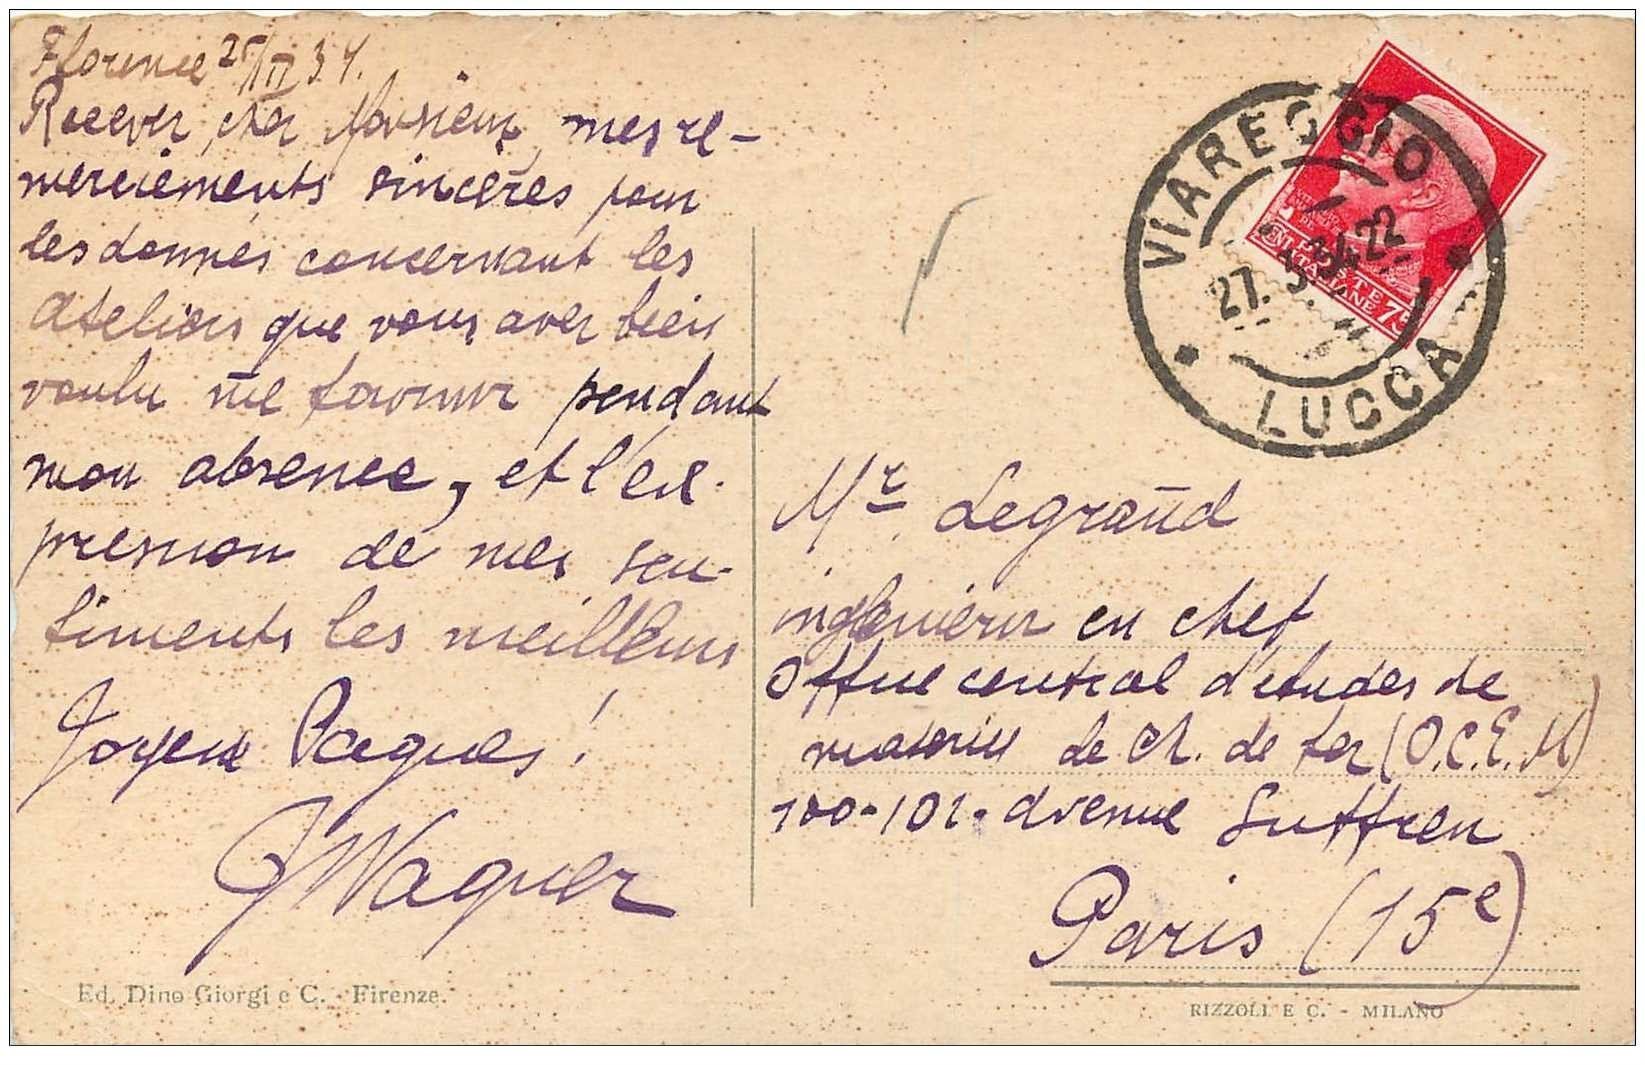 Florence 25/III 34.
Recever, cher Monsieur, mes re-
merciements sincères pour
les donnés concernant les
ateliers que vous aver bien
voulu me fournir pendant
mon absence, et l'ex-
pression de mes sen-
timents les meilleurs
Joyeux Paques!
Wagner
Ed. Dino Giorgi e C. - Firenze.
VIAREGGIO
27.3.34.22
LUCCA
POSTE
ITALIANE 75
Mr. Legrand
ingénieur en chef
Office central d'études de
matériel de ch. de fer (O.C.E.M)
100-102. avenue Suffren
Paris (15e)
RIZZOLI E C. - MILANO